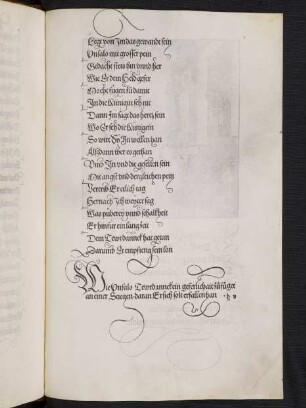 Legt von Im das gewandt sein
Unfalo mit grosser pein
Gedacht stew hin unnd her
Wie Er dem Held gefer
Mocht fuegen zu damit
In die kunigin sech nit
Dann Im sagt das hertz sein
Wo Er sech die kunigein
So wirt Sy In wellen han
Alsdann wer es gethan
Umb In und die gesellen sein
Mit angst und dergleichen pein
Vertrib Er etlich tag
Hernach Ich weyter sag
Was puberey unnd schalckheit
Er hinfur ein lang zeit
Dem Tewrdannck hat getan
Darumb Er empfieng sein lon
Wie Unfalo Tewrdannck ein geferlichait zufueget
an einer Stiegen daran Er sich solt erfallen han